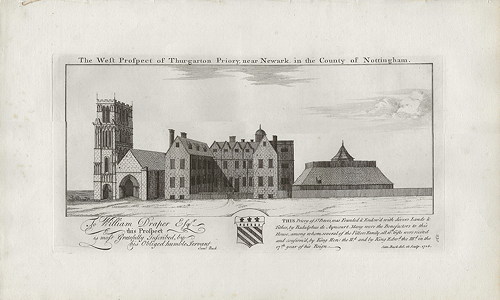 The West Prospect of Thurgarton Priory, near Newark, in the County of Nottingham.
To William Draper Esqr.
this Prospect
is most Gratefully Inscribed, by
his Obliged humble Servant
Saml. Buck
THIS Priory of St. Peter, was Founded & Endow'd with divers Lands &
Tithes, by Radulphus de Ayncourt. Many were the Benefactors to this
House, among whom several of the Family, all wch. Gifts were recited
and confirm'd by King Henr: the IId. and by King Edwd. the IIId. in the
17th. year of his Reign.
Saml. Buck del: et Sculp: 1726.